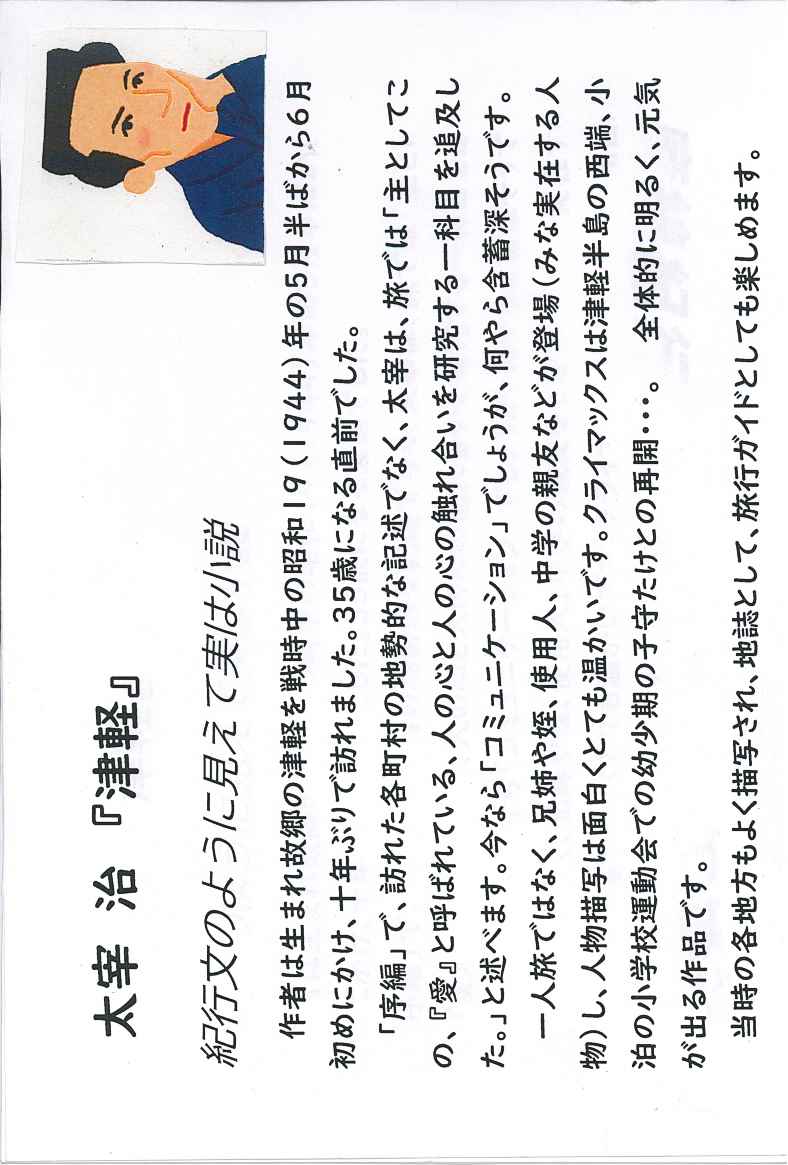 太宰 治 『津軽』
紀行文のように見えて実は小説
作者は生まれ故郷の津軽を戦時中の昭和19(1944)年の5月半ばから6月
初めにかけ、十年ぶりで訪れました。35歳になる直前でした。
「序編」で、訪れた各町村の地勢的な記述でなく、太宰は、旅では「主としてこ
の、『愛』と呼ばれている、人の心と人の心の触れ合いを研究する一科目を追及し
た。」と述べます。今なら「コミュニケーション」でしょうが、何やら含蓄深そうです。
一人旅ではなく、兄姉や姪、使用人、中学の親友などが登場(みな実在する人
物)し、人物描写は面白くとても温かいです。クライマックスは津軽半島の西端、小
泊の小学校運動会での幼少期の子守たけとの再開・・・。 全体的に明るく、元気
が出る作品です。
当時の各地方もよく描写され、地誌として、旅行ガイドとしても楽しめます。